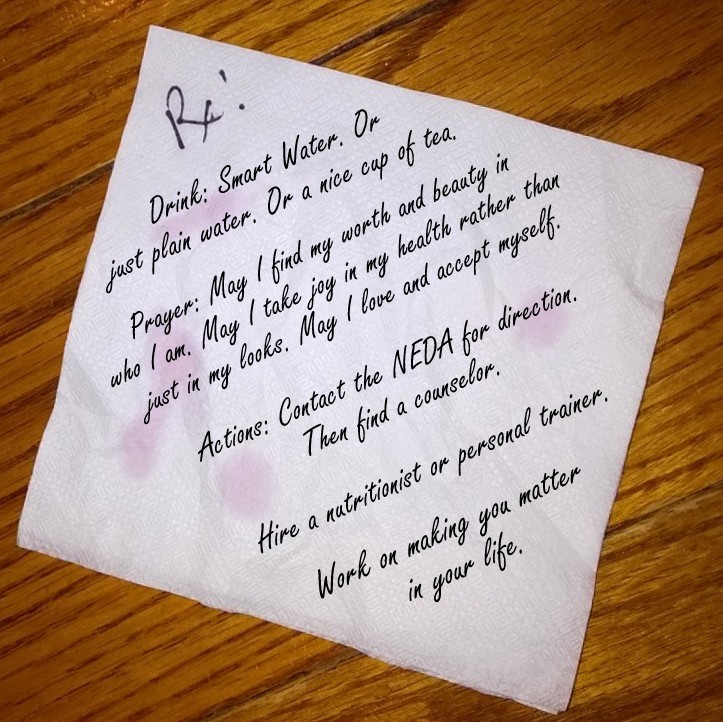 Rx:
Drink: Smart Water. Or
just plain water. Or a nice cup of tea.
Prayer: May I find my worth and beauty in
who I am. May I take joy in my health rather than
just in my looks. May I love and accept myself.
Actions: Contact the NEDA for direction.
Then find a counselor.
Hire a nutritionist or personal trainer.
Work on making you matter
in your life.